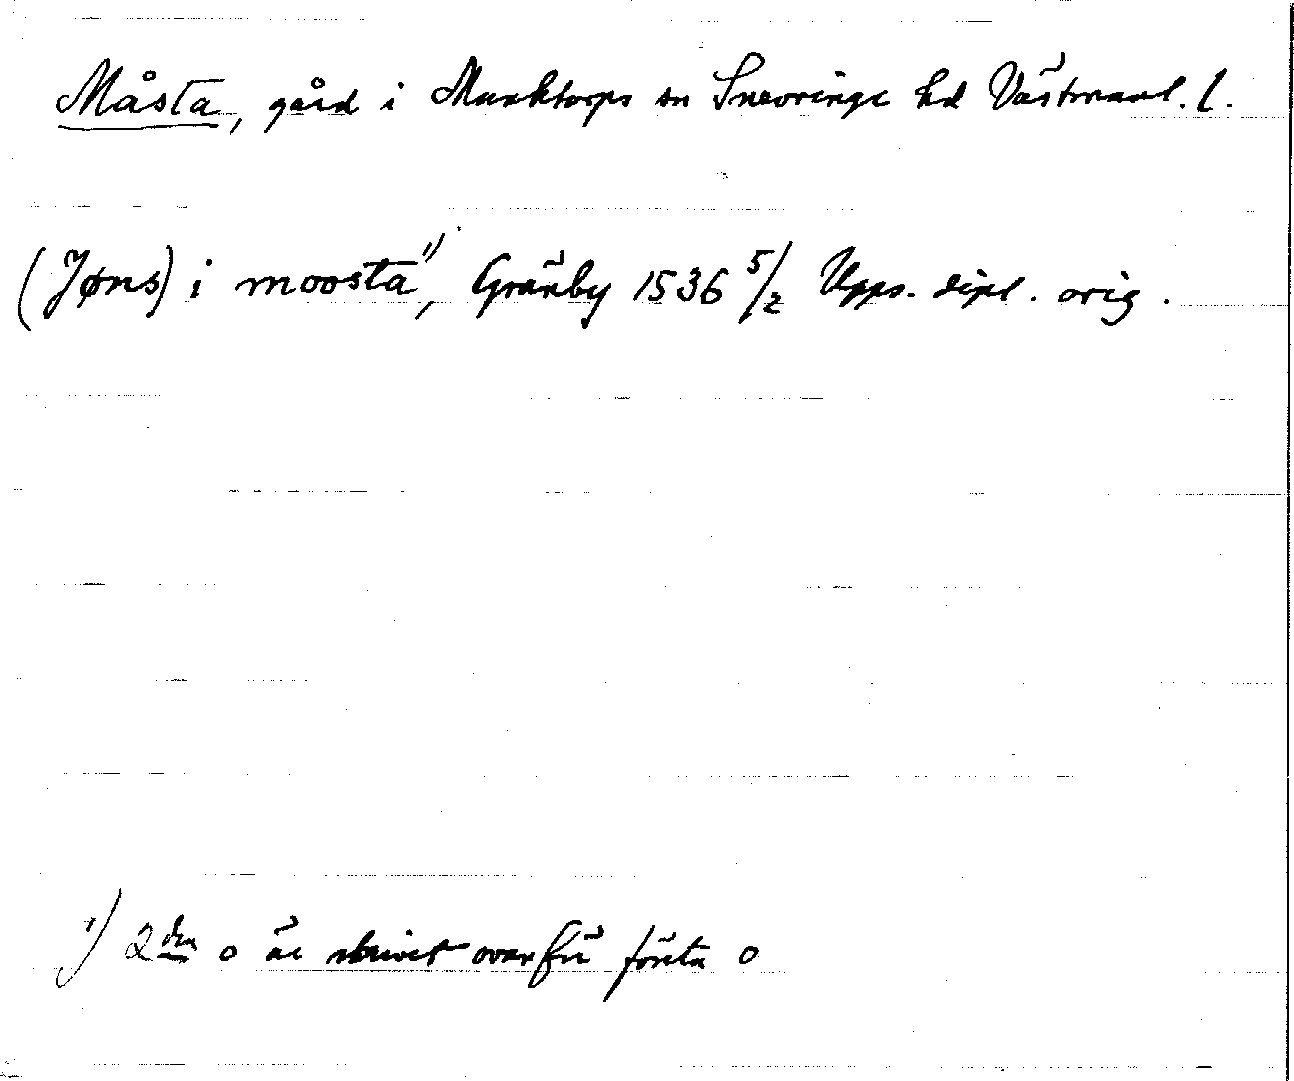 Måsta, gård i Munktorps sn Snevringe hd Västmanl. l.
(Jøns) i moosta 1), Gränby 1536 5/2 Upps. dipl. orig.
1) 2den o är skrivet ovanför första o